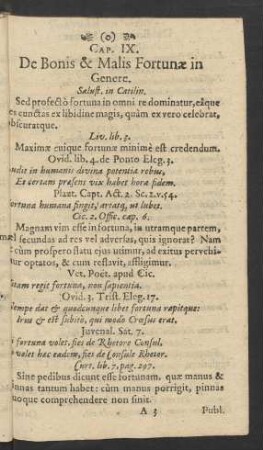 (o)
CAP. IX.
De Bonis & Malis Fortunæ in
Genere.
Salust. in Catilin.
Sed profectò fortuna in omni re dominatur, eáque
es cunctas ex libidine magis, quàm ex vero celebrat,
obscuratque.
Liv. lib. 3.
Maximæ cuique fortunæ minimè est credendum.
Ovid. lib. 4. de Ponto Eleg. 3.
udit in humanis divina potentia rebus,
Et certam præsens vix habet hora fidem.
Plaut. Capt. Act. 2. Sc. 2. v. 54.
ortuna humana fingit, artatq, ut lubet.
Cic. 2. Offic. cap. 6.
Magnam vim esse in fortuna, in utramque partem,
el secundas ad res vel adversas, quis ignorat? Nam
cùm prospero flatu ejus utimur, ad exitus pervehi-
ur optatos, & cum reflavit, affligimur.
Vet. Poët. apud Cic.
itam regit fortuna, non sapientia.
Ovid. 3. Trist. Eleg. 17.
Nempe dat & quodcunque libet fortuna rapitque:
Irus & est subitò, qui modo Crœsus erat.
Juvenal. Sat. 7.
fortuna volet, fies de Rhetore Consul.
volet hæc eadem, fies de Consule Rhetor.
Curt. lib. 7. pag. 297.
Sine pedibus dicunt esse fortunam, quæ manus &
innas tantum habet: cùm manus porrigit, pinnas
uoque comprehendere non sinit.
A 3 Publ.